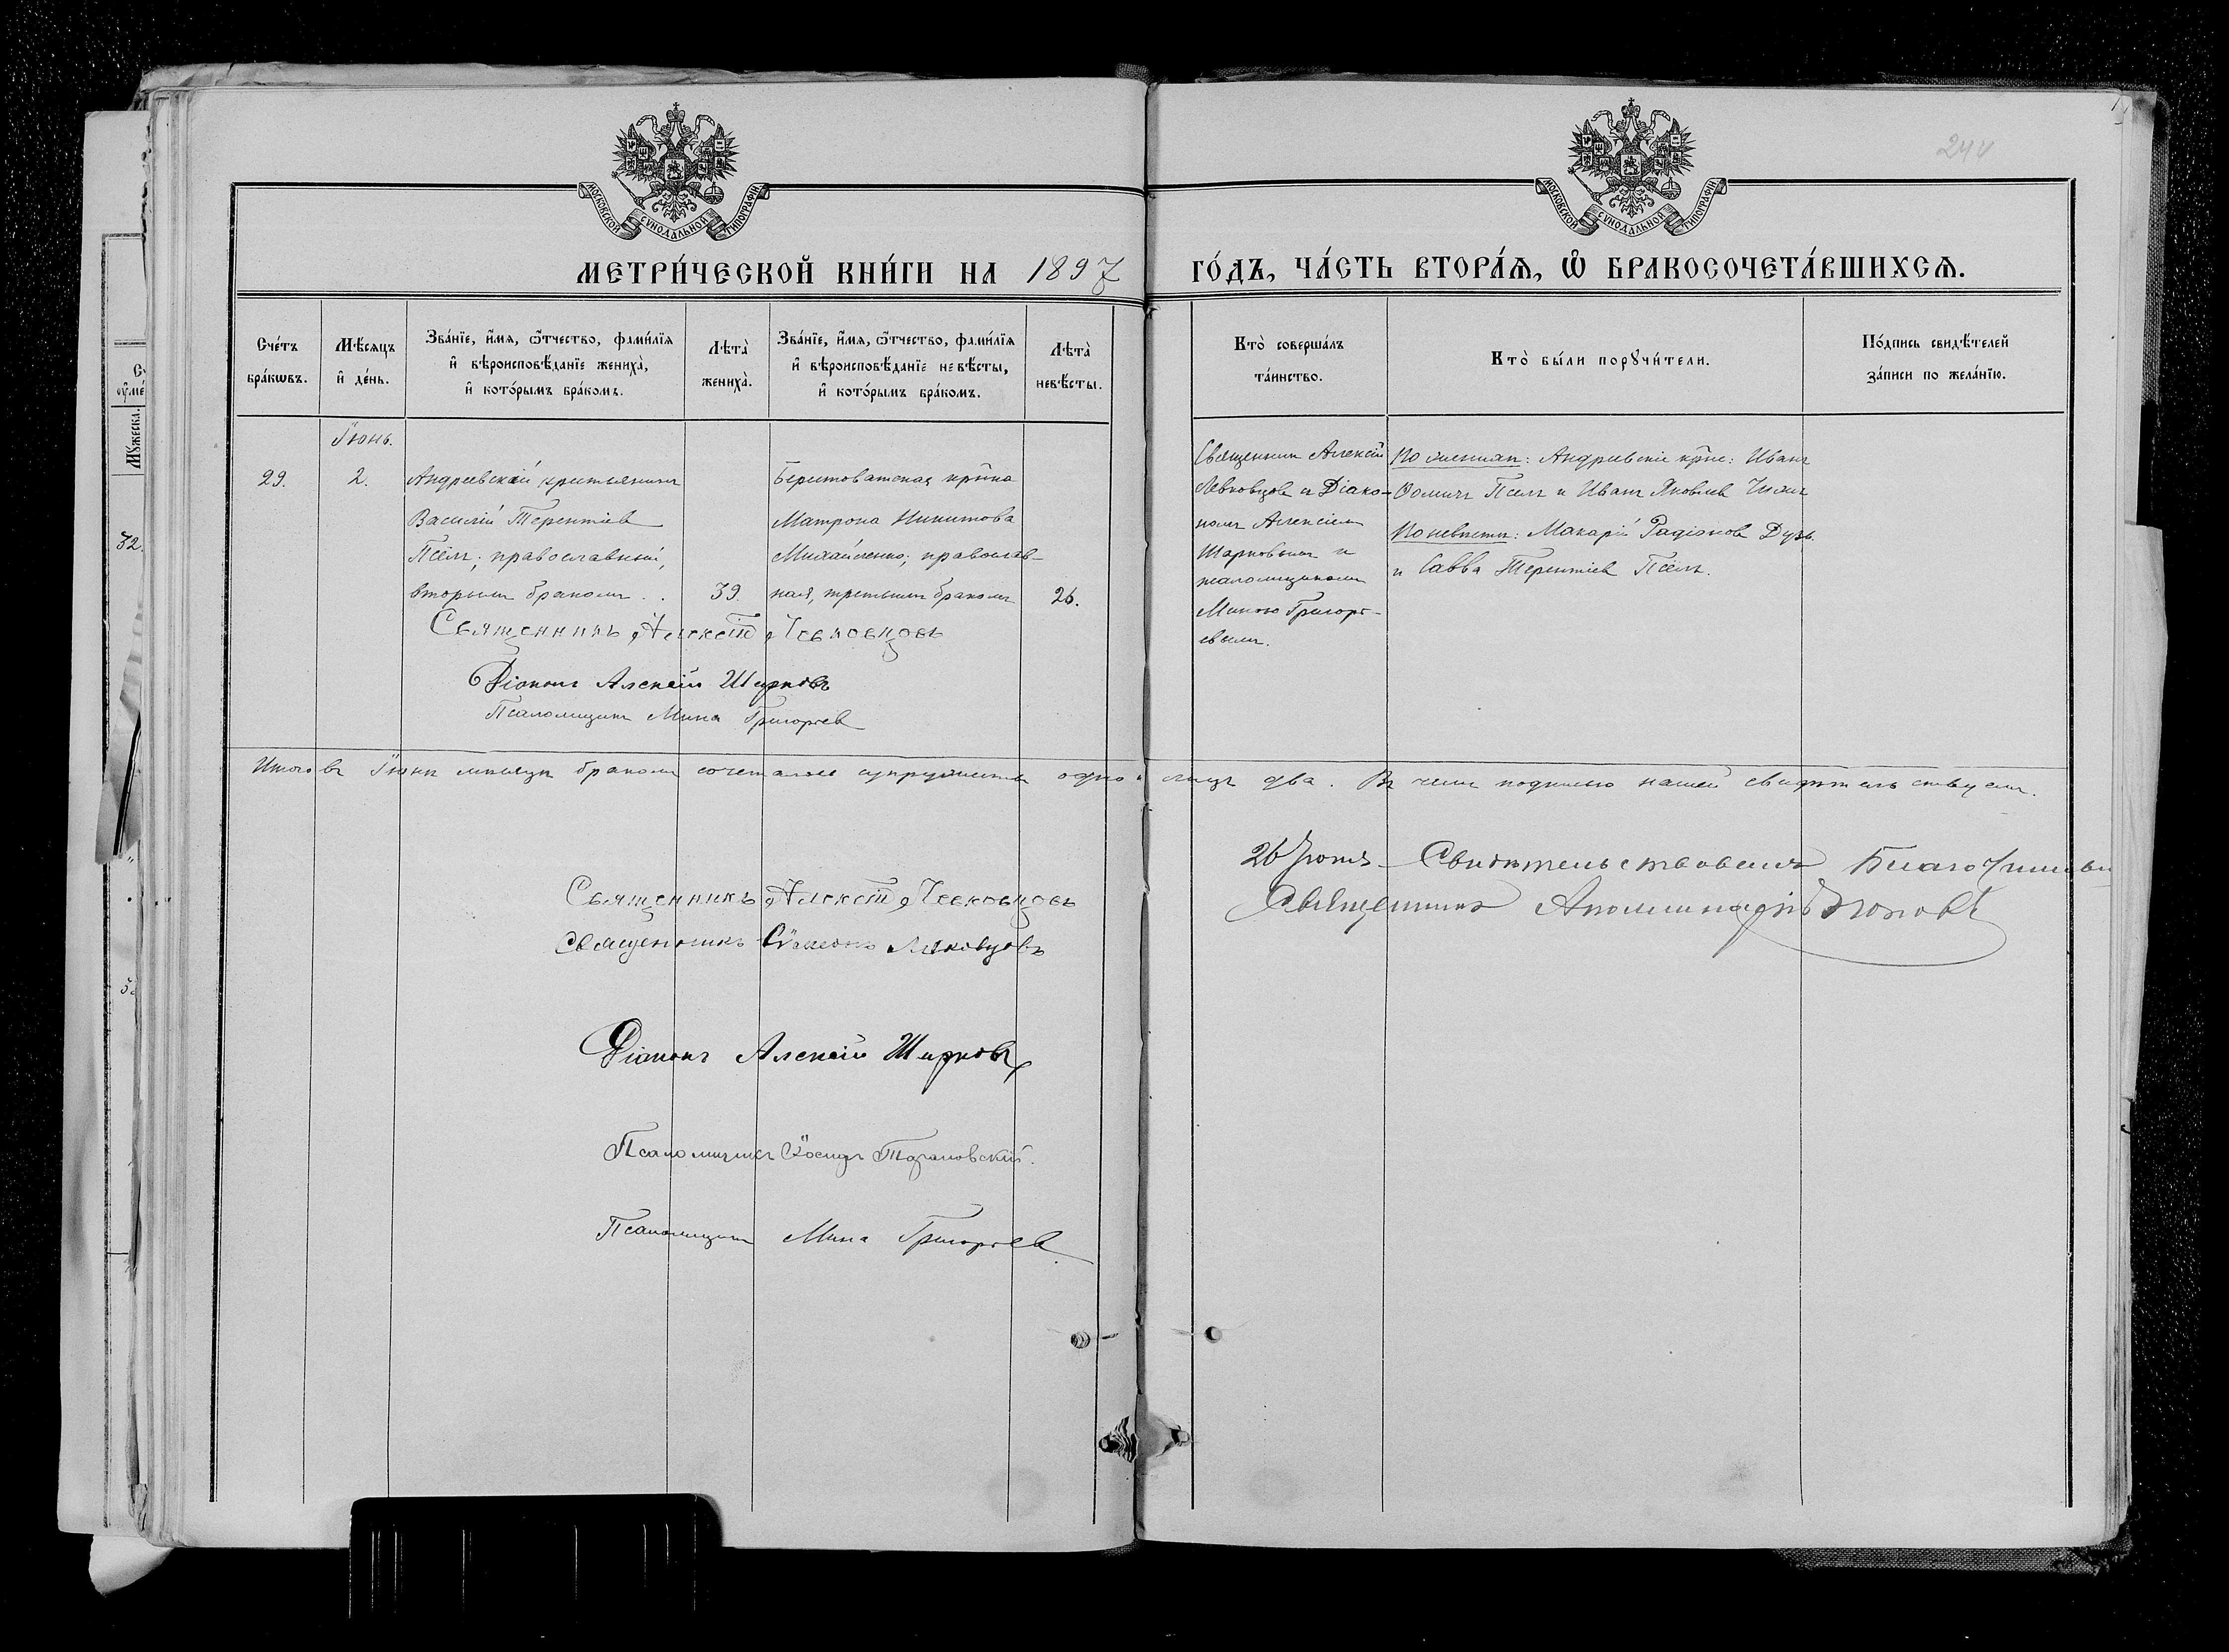 МОСКОВСКОЙ СѴНОДАЛЬНОЙ ТИПОГРАФІИ
МОСКОВСКОЙ СѴНОДАЛЬНОЙ ТИПОГРАФІИ
МЕТРИ́ЧЕСКОЙ КНИ́ГИ НА 1897 ГО́ДЪ, ЧА́СТЬ ВТОРА́Ѧ, Ѡ҆ БРАКОСОЧЕТА́ВШИХСѦ.
Сче́тъ
бра́кѡвъ.
Мѣ́сяцъ
и҆ де́нь.
Зва́нїе, и҆́мѧ, ѻ҆́тчество, фами́лїѧ
и҆ вѣроисповѣ́данїе жениха̀,
и҆ кото́рымъ бра́комъ.
Лѣта̀
жениха̀.
Зва́нїе, и҆́мѧ, ѻ҆́тчество, фами́лїѧ
и҆ вѣроисповѣ́данїе невѣ́сты,
и҆ кото́рымъ бра́комъ.
Лѣта̀
невѣ́сты.
Кто̀ соверша́лъ
та́инство.
Кто̀ бы́ли порꙋчи́тели.
По́дпись свидѣ́телей
за́писи по жела́нїю.
Іюнь.
29.
2.
Андреевскій крестьянинъ
Василій Терентіевъ
Псёлъ; православный,
вторымъ бракомъ
39.
Берестоватская кр̃нка
Матрона Никитова
Михайленко; православ-
ная, третьимъ бракомъ
26.
Священник Алексій
Левковцовъ съ Діако-
номъ Алексіем
Шарковым и
псаломщикомъ
Миною Григорь-
евымъ.
По женихѣ: Андреевскіе кр̃не: Иванъ
Ѳоминъ Псёлъ и Иванъ Яковлев
По невѣстѣ: Макарій Радіонов
и Савва Терентіев Псёлъ.
Священникъ Алексій Левковцовъ
Діаконъ Алексій Шарковъ
Псаломщикъ Мина Григорьев
Итого въ Іюнѣ мѣсяцѣ бракомъ сочеталось супружество одно, лицъ два. Въ чемъ подписью нашей свидѣтельствуемъ.
Священникъ Алексій Левковцовъ
Священникъ Сѷмеонъ Левковцовъ
Діаконъ Алексій Шарковъ
Псаломщикъ Іосифъ Тарановскій.
Псаломщикъ Мина Григорьев
26 Свидѣтельствовалъ Благочинный
Священникъ Аполлинарій
32.